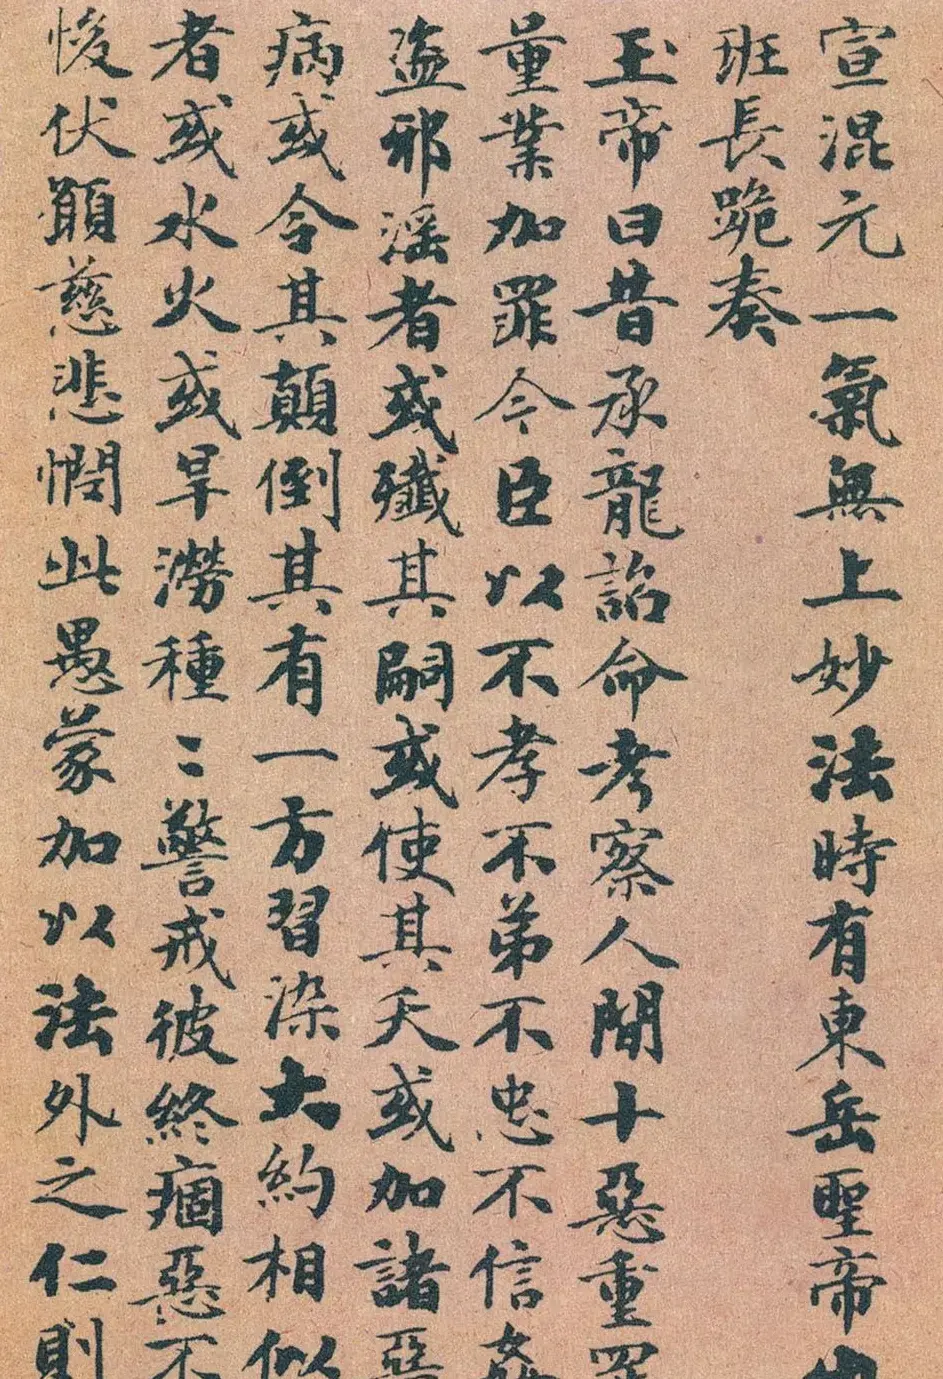 宣混元一氣無上妙法時有東岳聖帝出
班長跪奏
玉帝曰昔承龍詔命考察人間十惡重罪
量業加罪今臣以不孝不弟不忠不信姦
盗邪滛者或殱其嗣或使其夭或加諸惡
病或令其顛倒其有一方習染大約相似
者或水火或旱澇種〻警戒彼終痼惡不
悛伏願慈悲憫此愚蒙加以法外之仁則